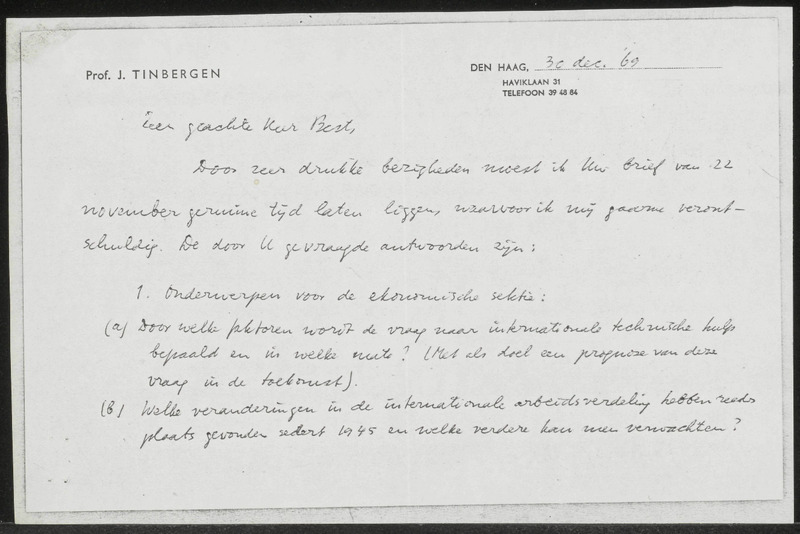 Prof. J. TINBERGEN
DEN HAAG, 30 dec. '69
HAVIKLAAN 31
TELEFOON 39 48 84
Zeer geachte Heer Best,
Door zeer drukke bezigheden moest ik Uw brief van 22
november geruime tijd laten liggen, waarvoor ik mij gaarne veront-
schuldig. De door U gevraagde antwoorden zijn:
1. Onderwerpen voor de ekonomische sektie:
(a) Door welke faktoren wordt de vraag naar internationale technische hulp
bepaald en in welke mate? (Met als doel een prognose van deze
vraag in de toekomst).
(b) Welke veranderingen in de internationale arbeidsverdeling hebben reeds
plaats gevonden sedert 1945 en welke verdere kan men verwachten?